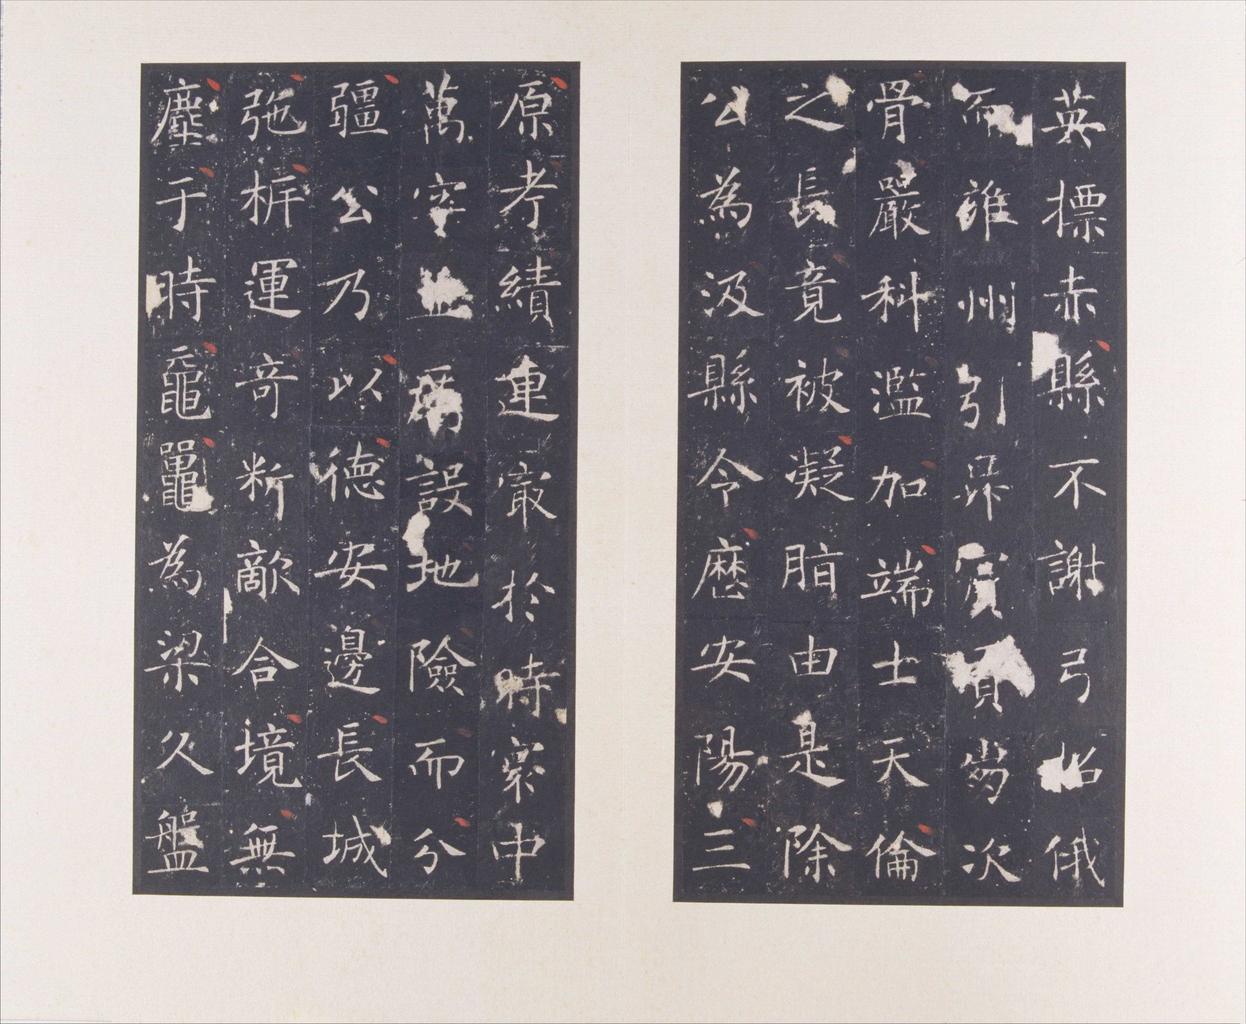 英摽赤縣不謝弓招俄
而雖州引昇賓貢芻次
骨嚴科濫加端士天倫
之長竟被凝脂由是除
公為汲縣令歷安陽三
原考績連㝡於時寮中
萬室並属設地險而分
疆公乃以德安邊長城
弛柝運奇断敵合境無
塵于時黿鼉為梁久盤